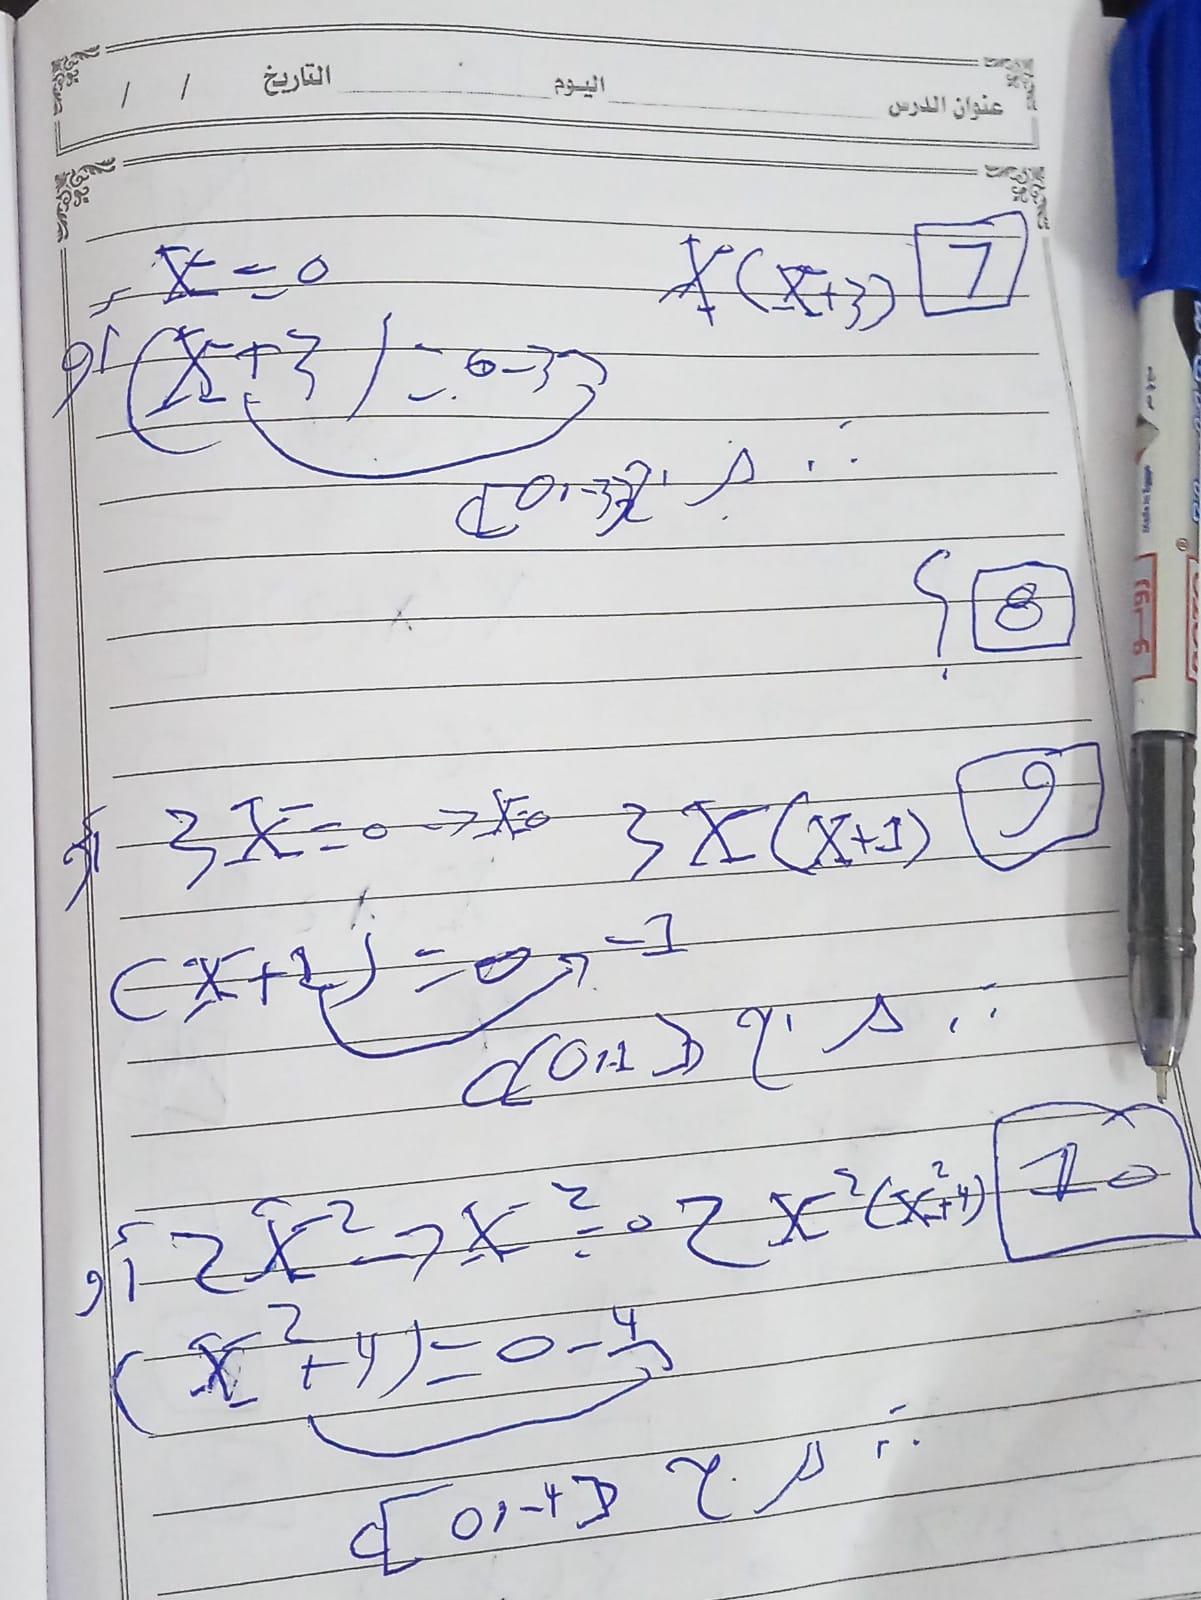 عنوان الدرس اليوم التاريخ / /
7 X(X+3) X=0
أو (X+3)=0-3
∴ م.ح {0,-3}
8 ؟
9 3X(X+1) 3X=0→X=0 أو
(X+1)=0 -1
∴ م.ح {0,-1}
10 2X²(X²+4) 2X²→X²=0 أو
(X²+4)=0-4
∴ م.ح {0,-4}
Made in Egypt